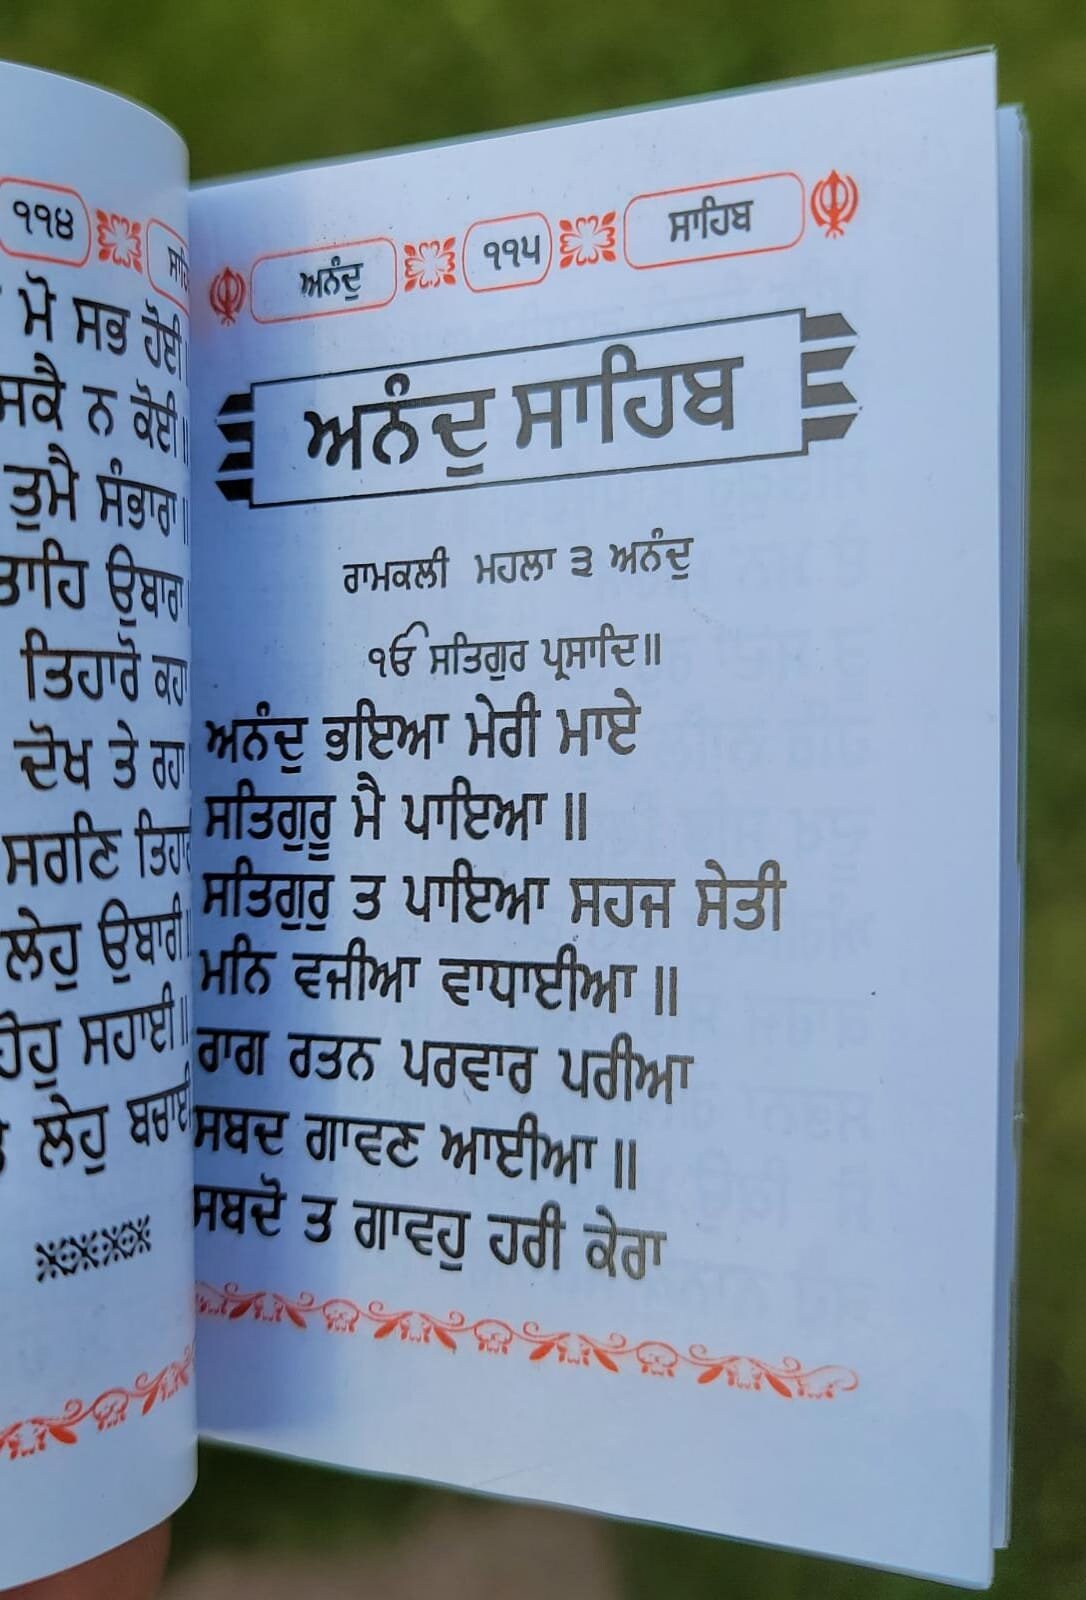 ੧੧੪
ਮੋ ਸਭ ਹੋਈ॥
ਸਕੈ ਨ ਕੋਈ॥
ਤੁਮੈ ਸੰਭਾਰਾ॥
ਤਾਹਿ ਉਬਾਰਾ
ਤਿਹਾਰੋ ਕਹਾ
ਦੋਖ ਤੇ ਰਹਾ
ਸਰਣਿ
ਲੇਹੁ ਉਬਾਰੀ॥
ਹੋਹੁ ਸਹਾਈ॥
ਲੇਹੁ ਬਚਾਈ
ਅਨੰਦੁ ੧੧੫ ਸਾਹਿਬ
ਅਨੰਦੁ ਸਾਹਿਬ
ਰਾਮਕਲੀ ਮਹਲਾ ੩ ਅਨੰਦੁ
ੴ ਸਤਿਗੁਰ ਪ੍ਰਸਾਦਿ॥
ਅਨੰਦੁ ਭਇਆ ਮੇਰੀ ਮਾਏ
ਸਤਿਗੁਰੂ ਮੈ ਪਾਇਆ ॥
ਸਤਿਗੁਰੁ ਤ ਪਾਇਆ ਸਹਜ ਸੇਤੀ
ਮਨਿ ਵਜੀਆ ਵਾਧਾਈਆ ॥
ਰਾਗ ਰਤਨ ਪਰਵਾਰ ਪਰੀਆ
ਸਬਦ ਗਾਵਣ ਆਈਆ ॥
ਸਬਦੋ ਤ ਗਾਵਹੁ ਹਰੀ ਕੇਰਾ